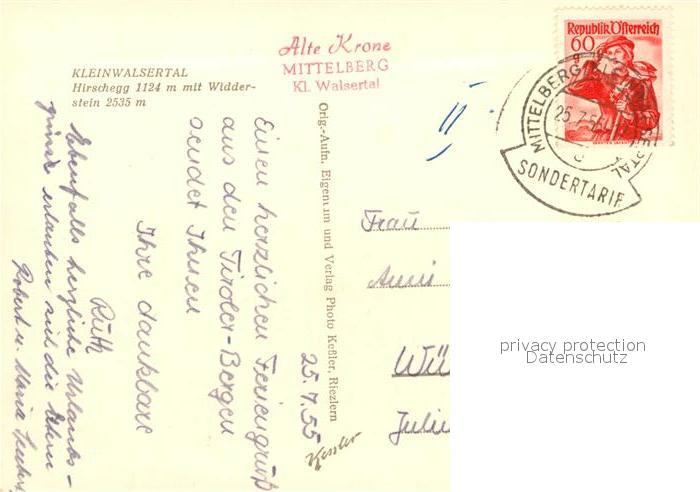 KLEINWALSERTAL
Hirschegg 1124 m mit Widder-
stein 2535 m
Alte Krone
MITTELBERG
Kl. Walsertal
Republik Österreich
60
MITTELBERG
25.7.55
SONDERTARIF
Orig.-Aufn. Eigentum und Verlag Photo Keßler, Riezlern
Kessler
25.7.55
Einen herzlichen Feriengruß
aus den Tiroler-Bergen
sendet Ihnen
Ihre dankbare
Ruth
Ebenfalls herzliche Urlaubs-
grüsse erlauben sich die Eltern
Robert u. Maria
Frau
Anni
Wü
Juliu
privacy protection
Datenschutz